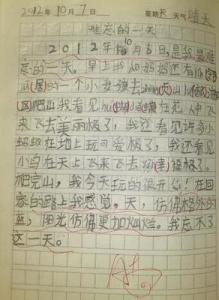 2012年10月7日 星期天 天气晴天
难忘的一天
2012年10月6日是我最难
忘的一天。早上我和妈妈还有
的一个小妹妹去山
爬山我看见蝴蝶在花人中飞
来飞去美丽极了,我还看见许多小
蚂蚁在地上玩可爱极了,我还看见
小鸟在天上飞来飞去极了。
爬完山,我今天玩的很开心!在回
家的路上我感觉。天,仿佛格外的
蓝,阳光仿佛更加灿烂。我忘不了
这一天。